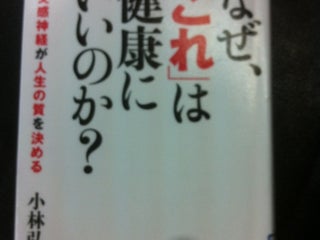 なぜ、
「これ」は
健康に
いいのか?
交感神経が人生の質を決める
小林弘